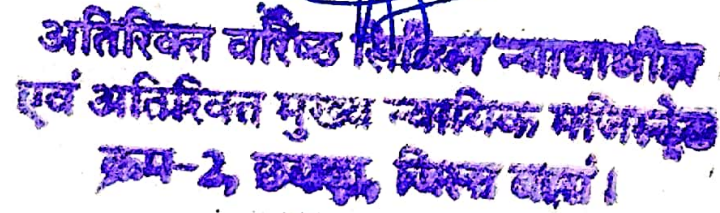 अतिरिक्त वरिष्ठ सिविल न्यायाधीश
एवं अतिरिक्त मुख्य न्यायिक मजिस्ट्रेट
क्रम-2, छबड़ा, जिला बारां।